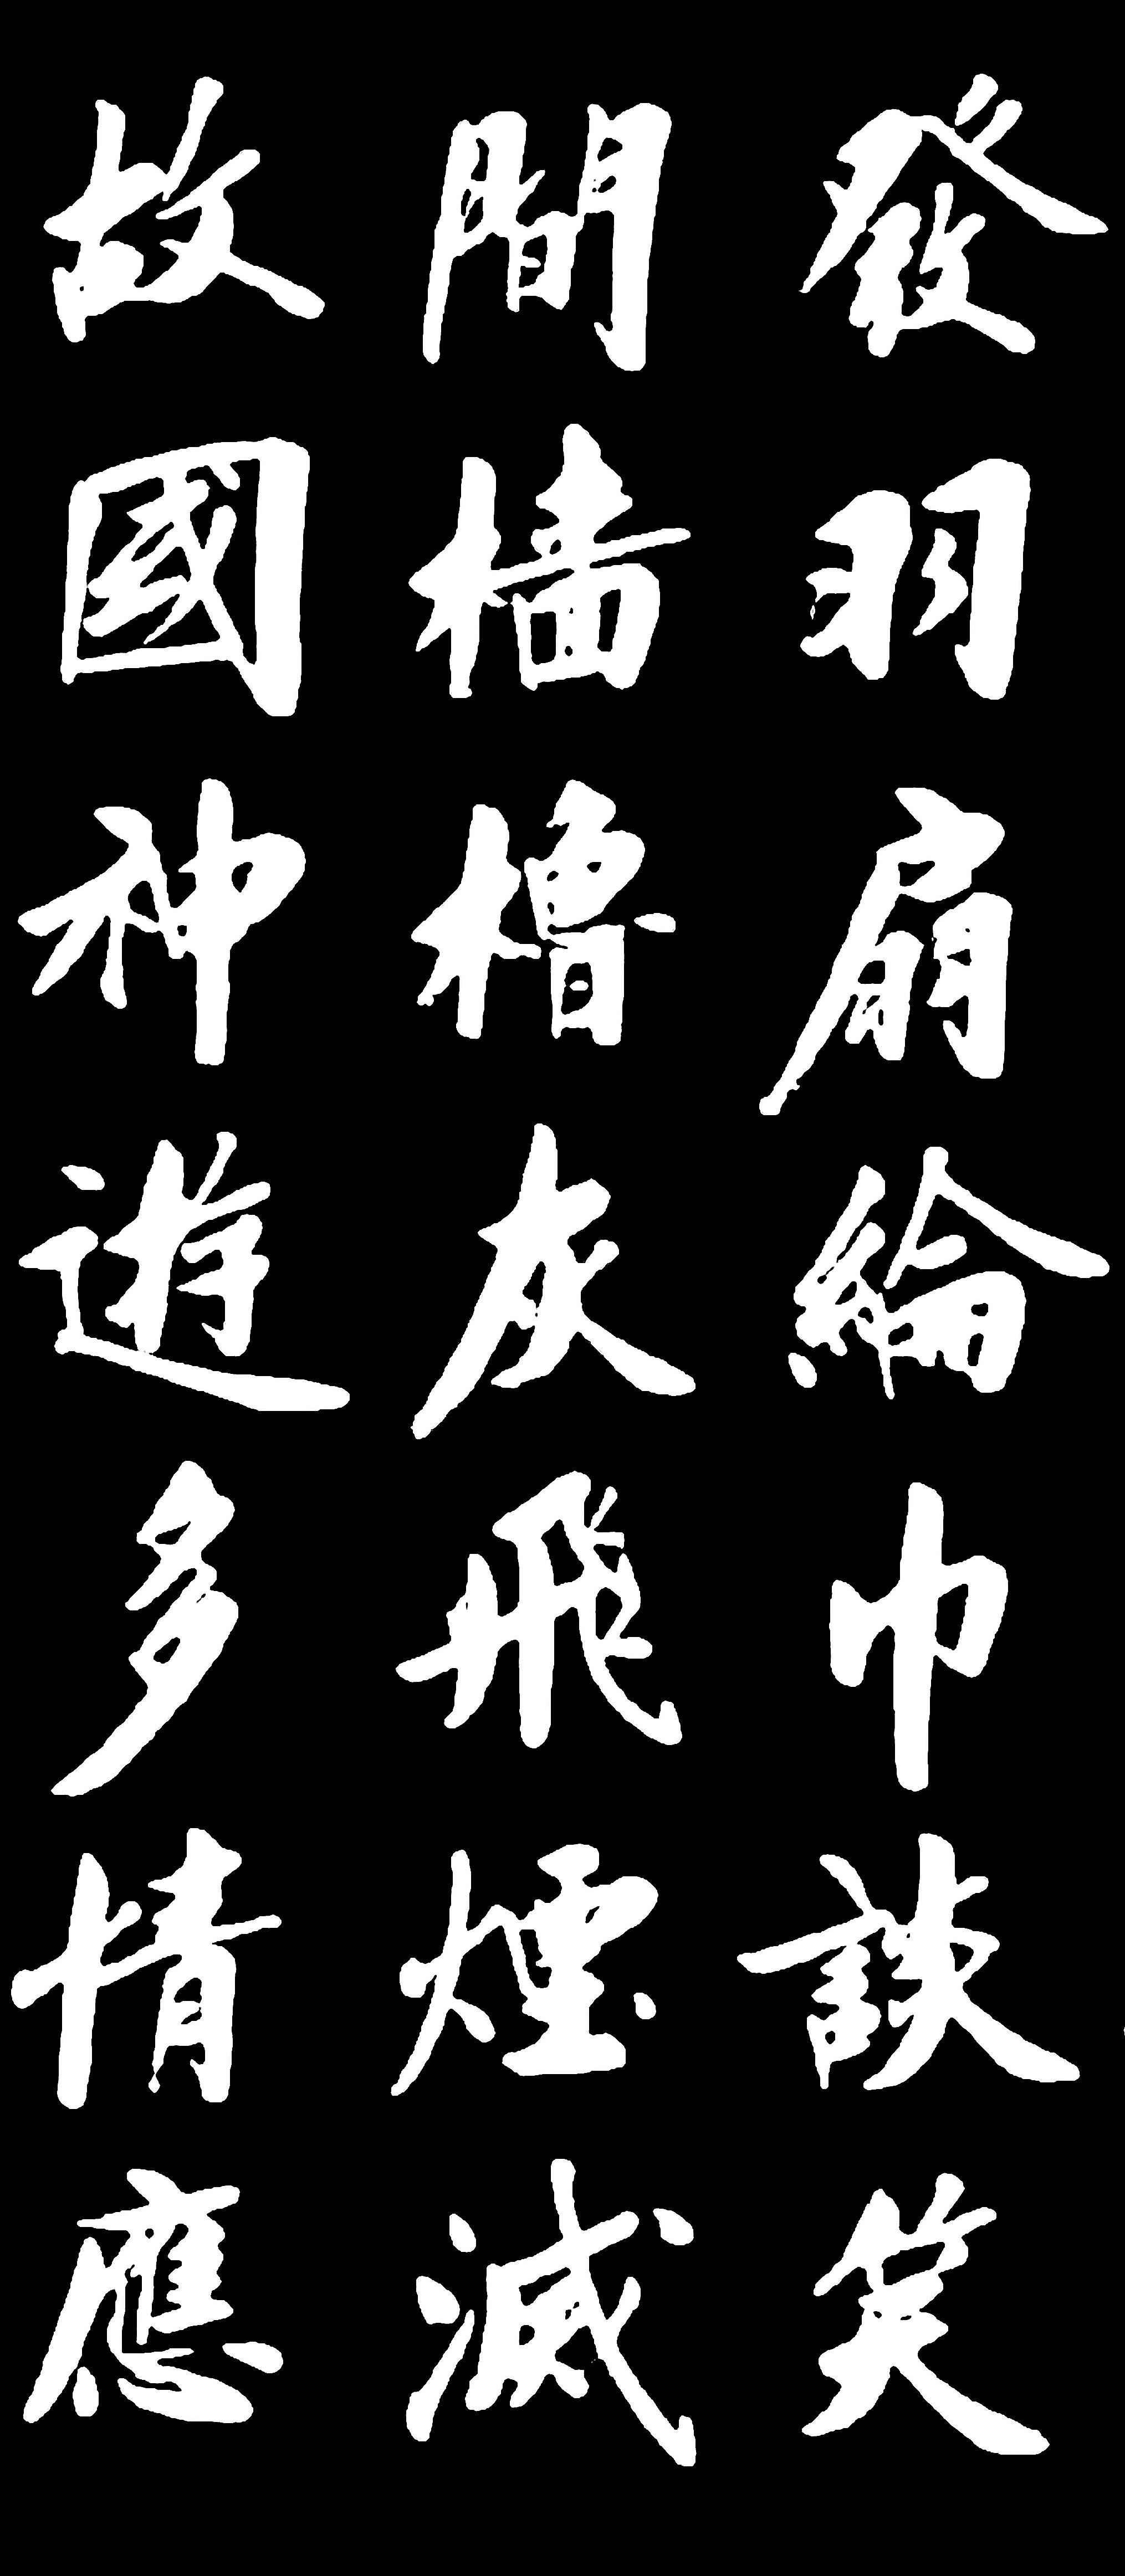 發羽扇綸巾談笑
間檣櫓灰飛煙滅
故國神遊多情應